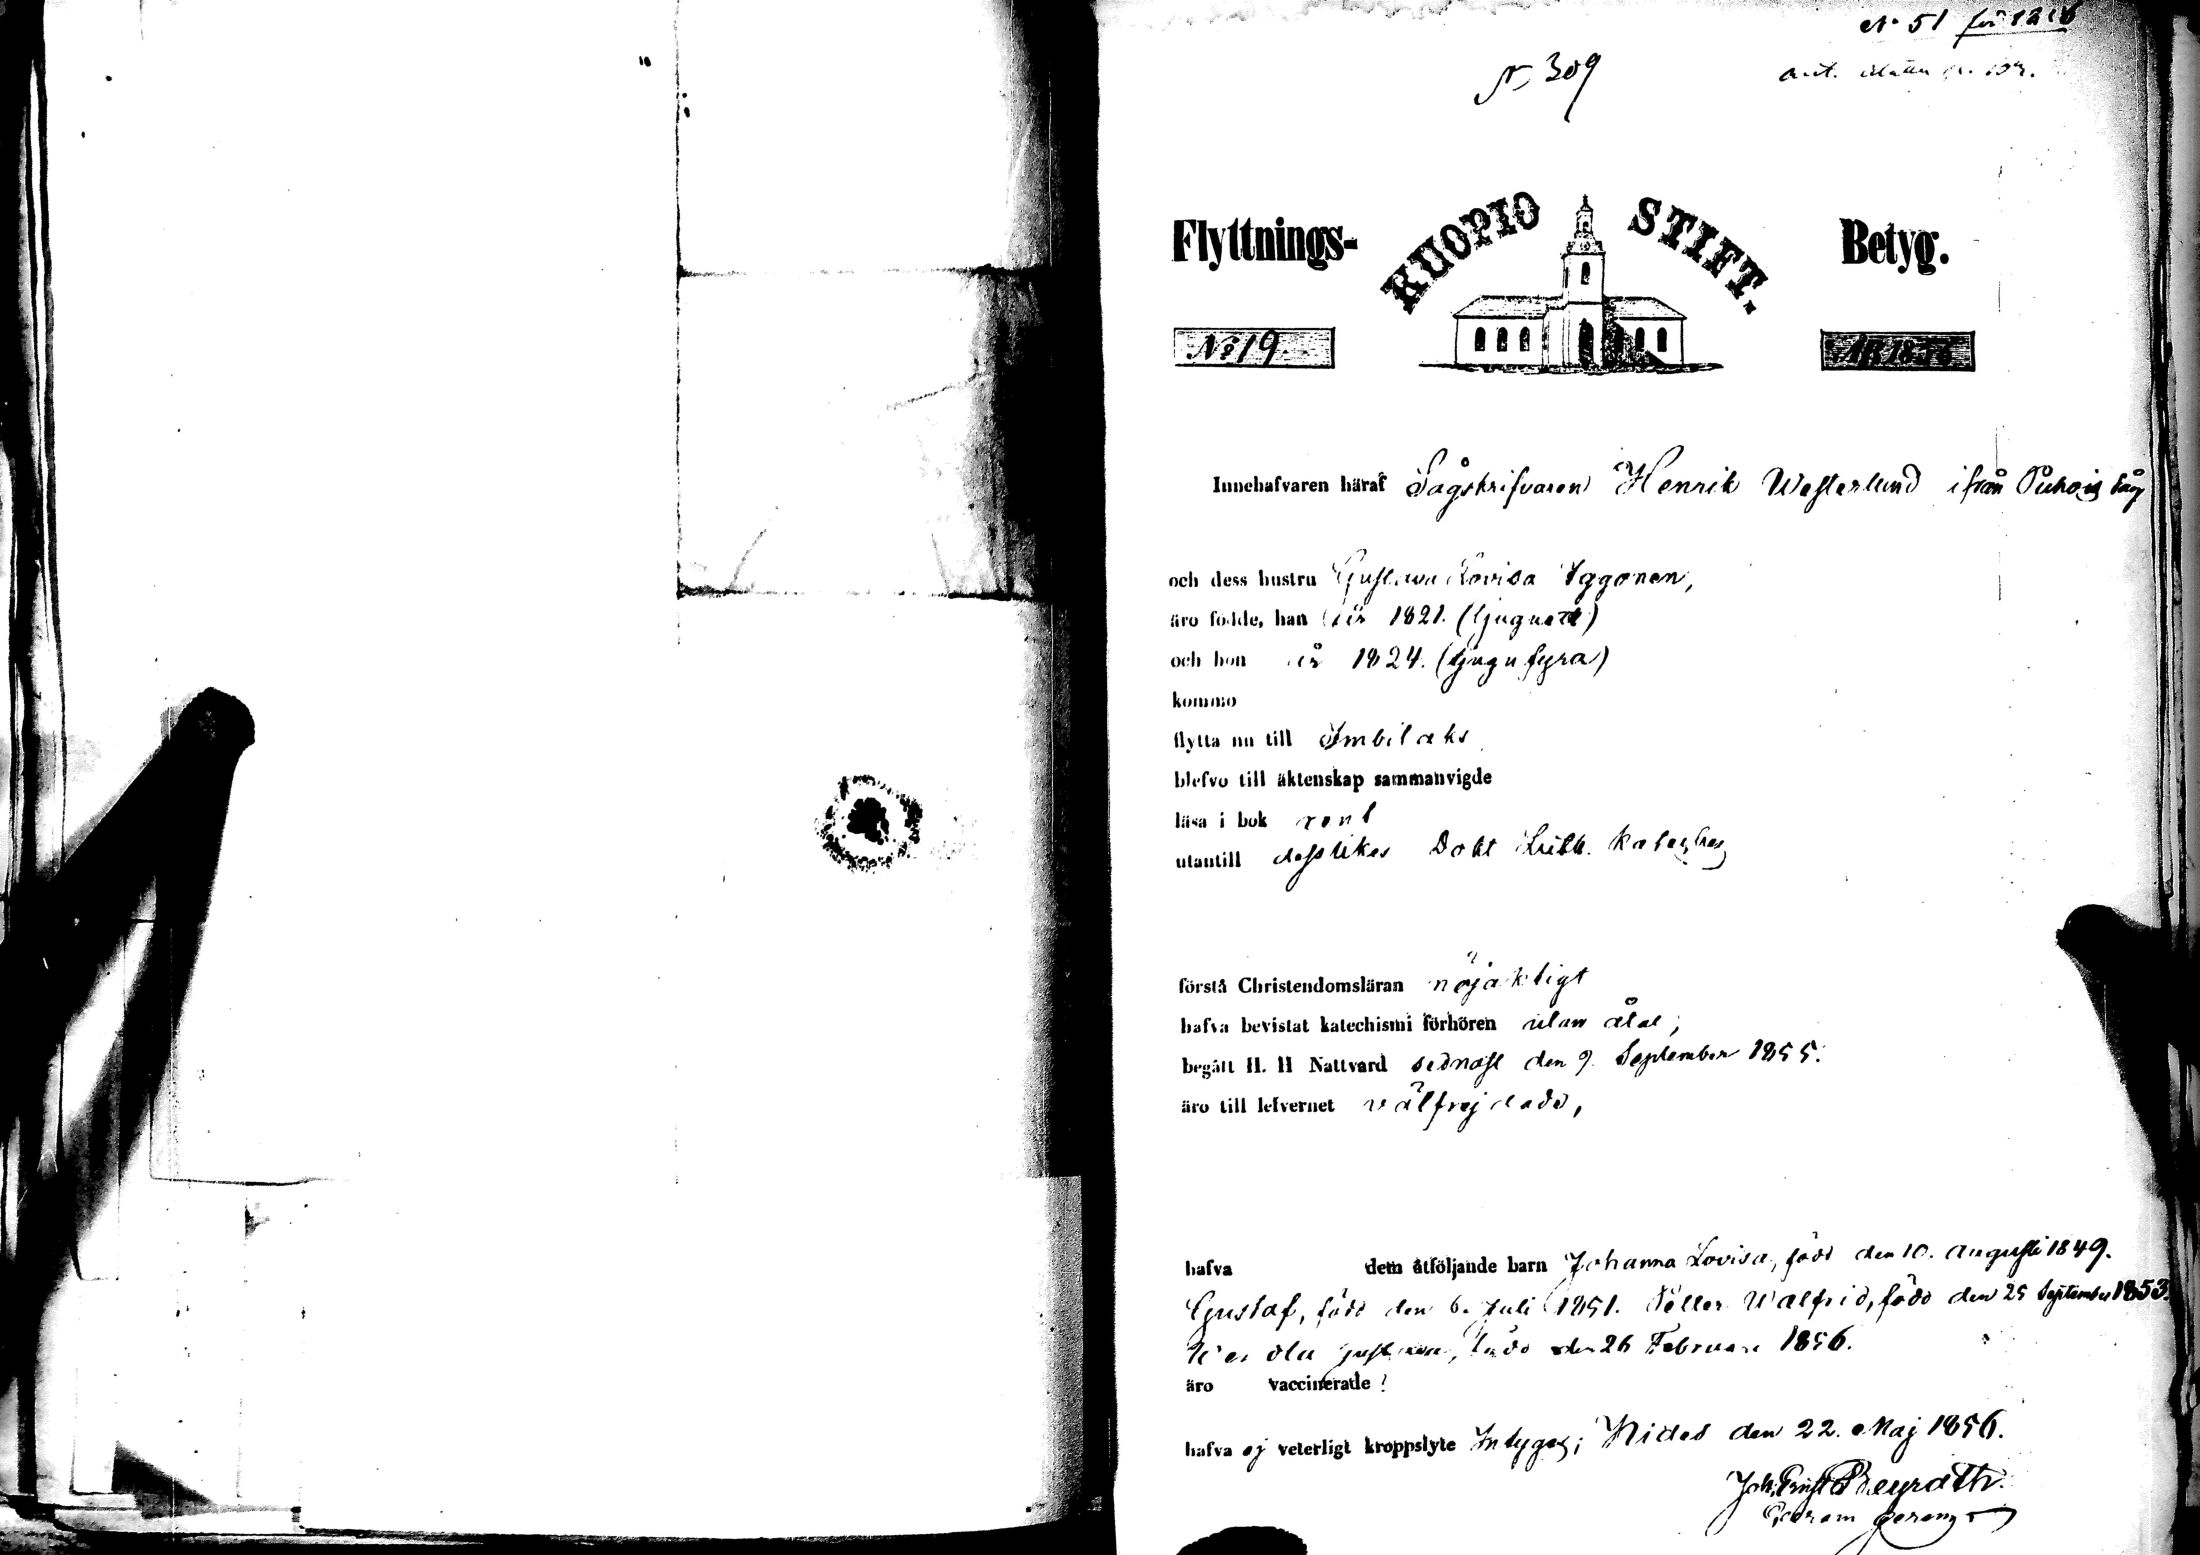 No 51 för 1216
N: 309
KUOPIO STIFT.
Flyttnings- Betyg.
No 19 ÅR 1856
Innehafvaren häraf Sågskrifvaren Henrik Westerlund ifrån Puhois Såg
och dess hustru Gustava Lovisa Iggonen,
äro födde, han år 1821. (tjuguett)
och hon år 1824. (tjugufyra)
kommo
flytta nu till Imbilaks
blefvo till äktenskap sammanvigde
läsa i bok rent
utantill desslikes Dokt Luth. Kateches
förstå Christendomsläran nöjaktigt
hafva bevistat katechismi förhören utan åtal,
begått H. H Nattvard sednast den 9. September 1855.
äro till lefvernet välfrejdade,
hafva dem åtföljande barn Johanna Lovisa, född den 10. Augusti 1849.
Gustaf, född den 6. Juli 1851. Petter Walfrid, född den 25 September 1853.
Gustava, född den 26 Februari 1856.
äro vaccinerade;
hafva ej veterligt kroppslyte Intygas; Kides den 22. Maj 1856.
Joh. Ernst